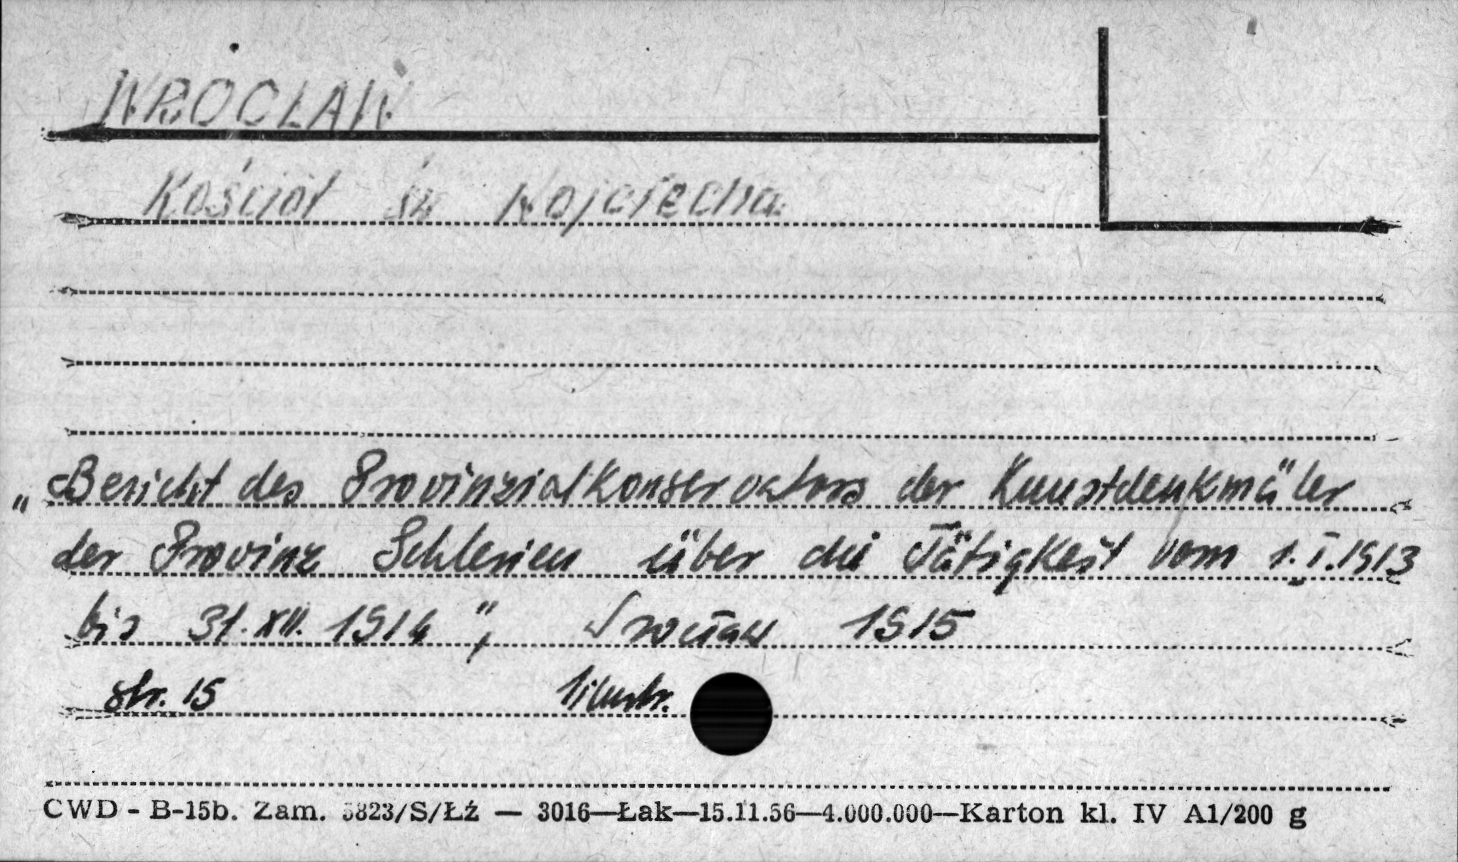 WROCŁAW
Kościół św Wojciecha
„Bericht des Provinzialkonservators der Kunstdenkmäler
der Provinz Schlesien über die Tätigkeit vom 1.I.1913
bis 31.XII.1914", Wrocław 1915
str. 15 1 ilustr.
CWD - B-15b. Zam. 5823/S/Łź — 3016—Łak—15.11.56—4.000.000—Karton kl. IV A1/200 g